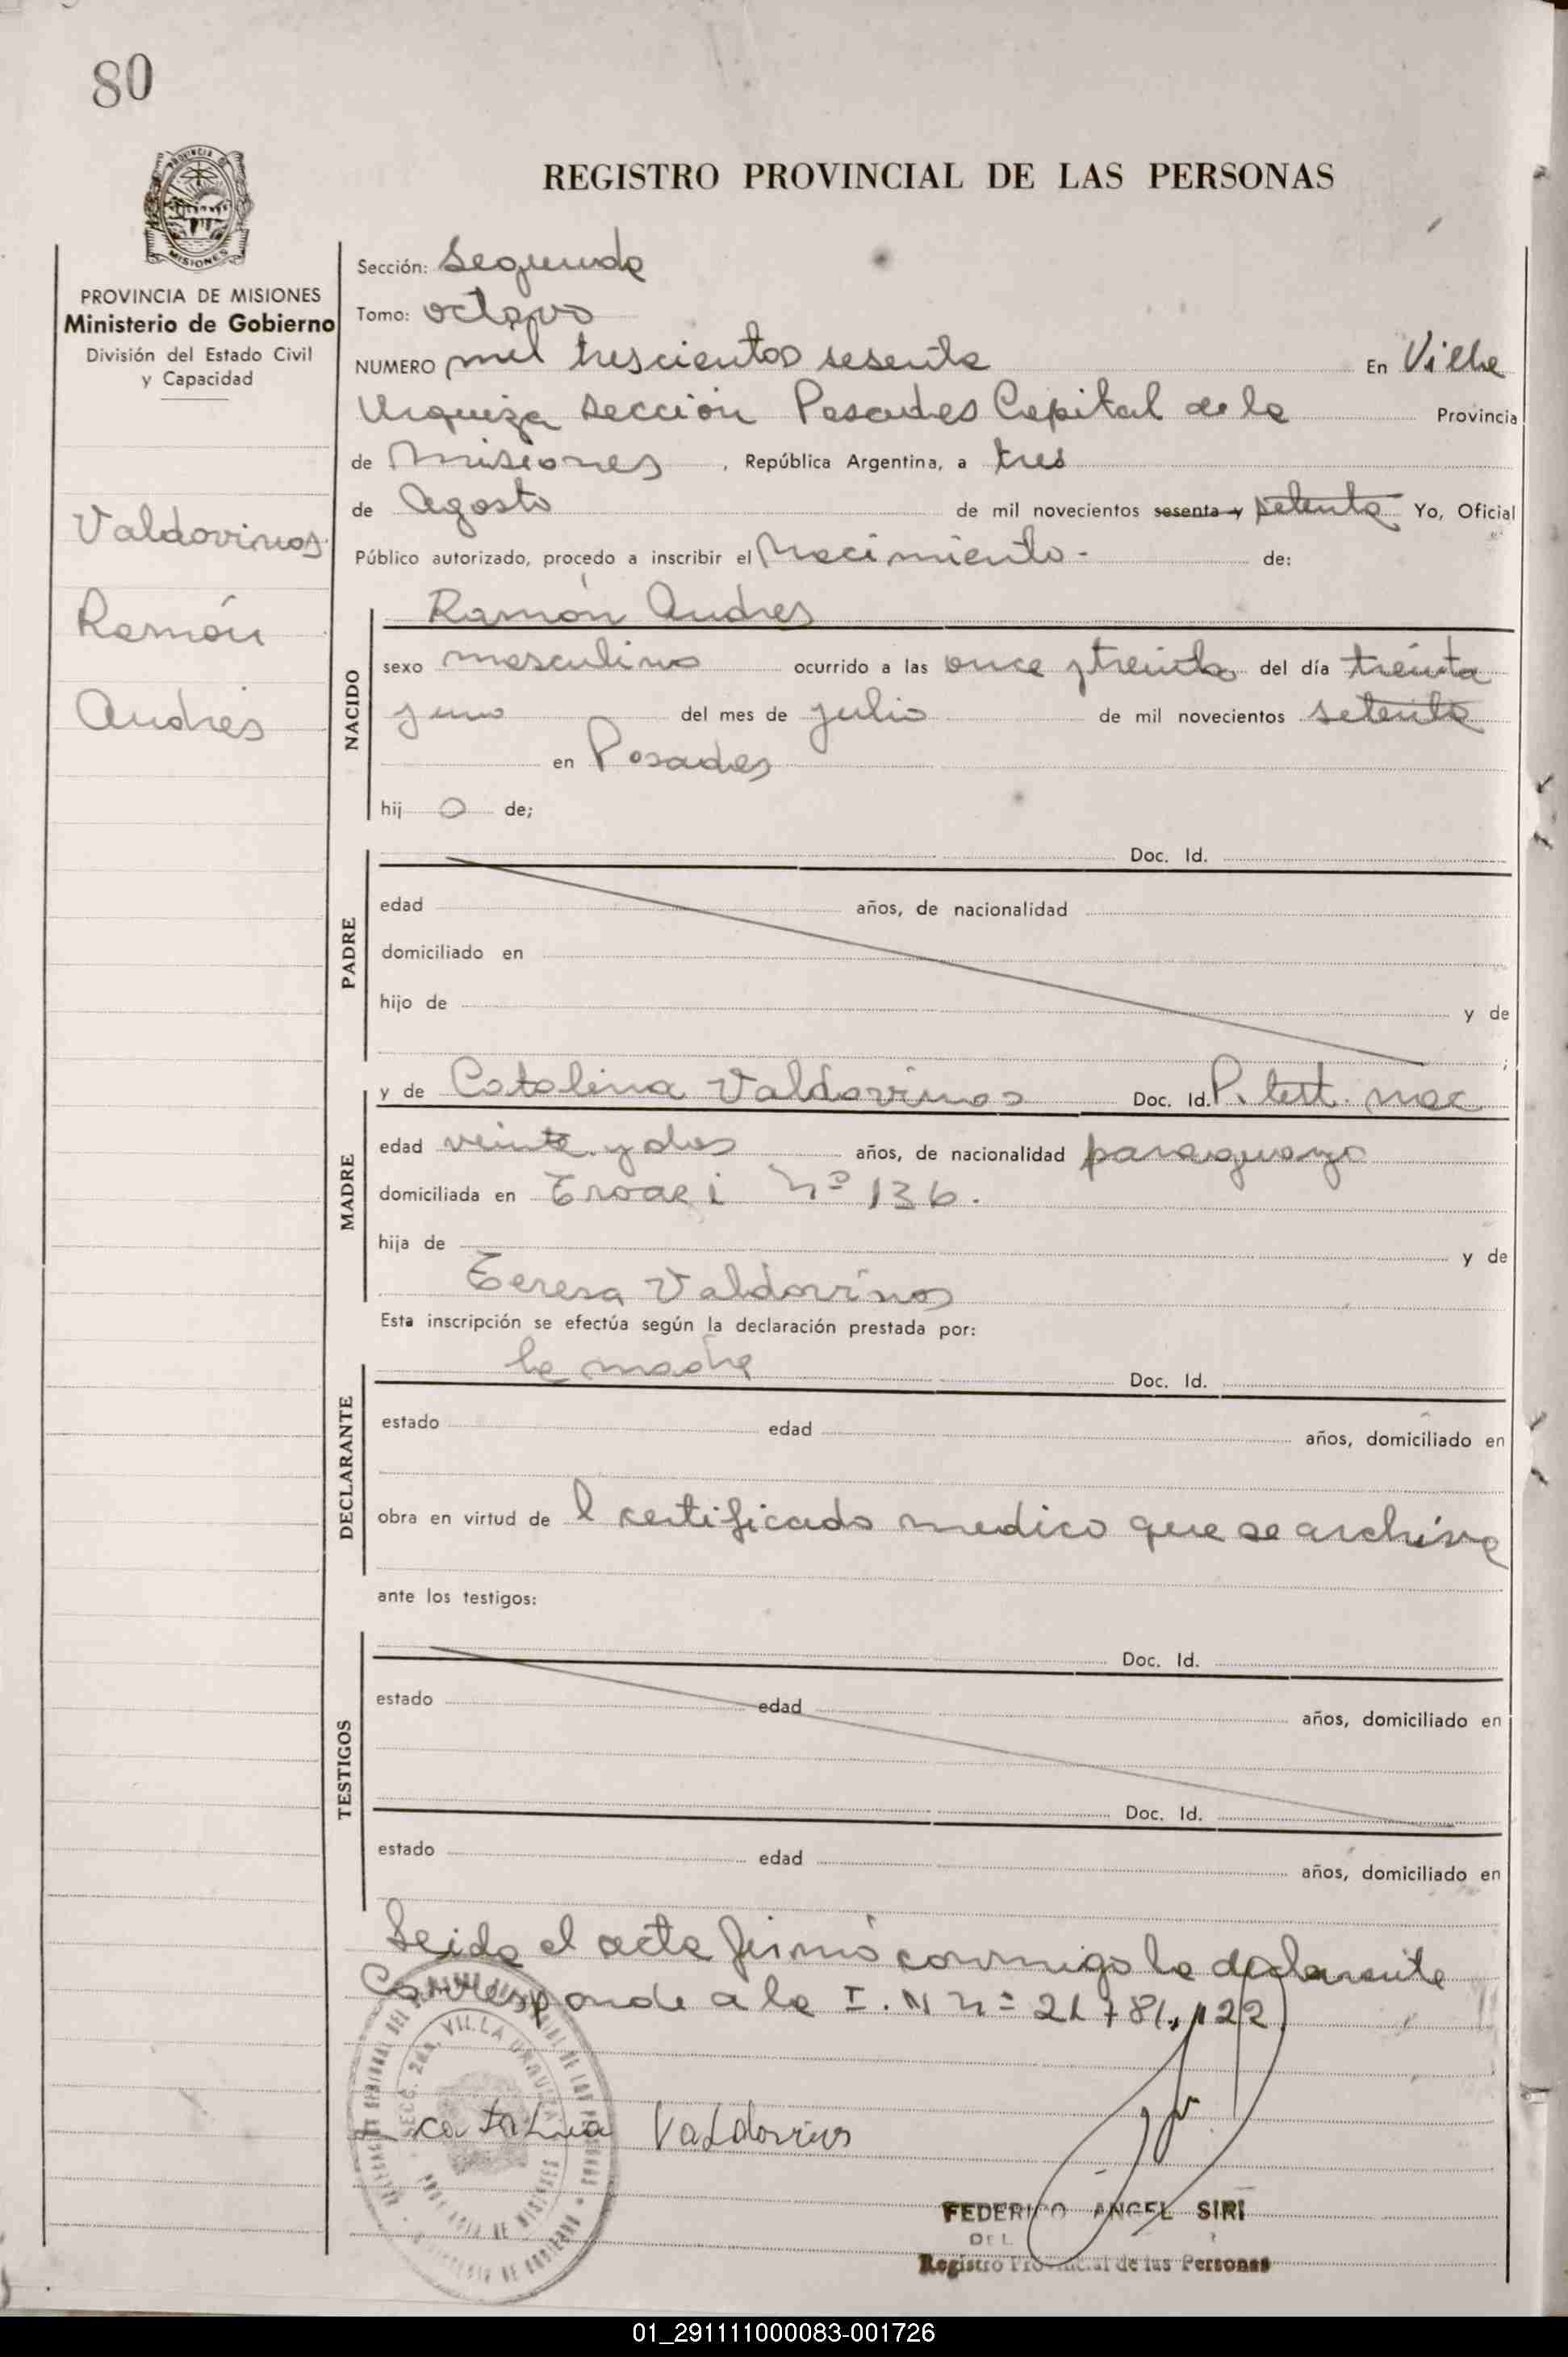 80
REGISTRO PROVINCIAL DE LAS PERSONAS
PROVINCIA DE MISIONES
Ministerio de Gobierno
División del Estado Civil
y Capacidad
Valdovinos
Ramón
Andres
Sección: Segunda
Tomo: octavo
NUMERO mil trescientos sesenta En Villa
Urquiza sección Posadas Capital de la Provincia
de Misiones, República Argentina, a tres
de Agosto de mil novecientos sesenta y setenta Yo, Oficial
Público autorizado, procedo a inscribir el Nacimiento - de:
NACIDO
Ramón Andres
sexo masculino ocurrido a las once y treinta del día treinta
y uno del mes de julio de mil novecientos setenta
en Posadas
hij o de;
PADRE
Doc. Id.
edad años, de nacionalidad
domiciliado en
hijo de y de
MADRE
y de Catalina Valdovinos Doc. Id. P. test. nac
edad veinte y dos años, de nacionalidad paraguaya
domiciliada en Nº 136.
hija de y de
Teresa Valdovinos
Esta inscripción se efectúa según la declaración prestada por:
DECLARANTE
la madre Doc. Id.
estado edad años, domiciliado en
obra en virtud de l certificado medico que se archiva
ante los testigos:
TESTIGOS
Doc. Id.
estado edad años, domiciliado en
Doc. Id.
estado edad años, domiciliado en
Leida el acta firmó conmigo la declarante
Corresponde a la I. N nº
SECC. 2da. VILLA URQUIZA
Catalina Valdovinos
FEDERICO ANGEL SIRI
DEL
Registro Provincial de las Personas
01_291111000083-001726